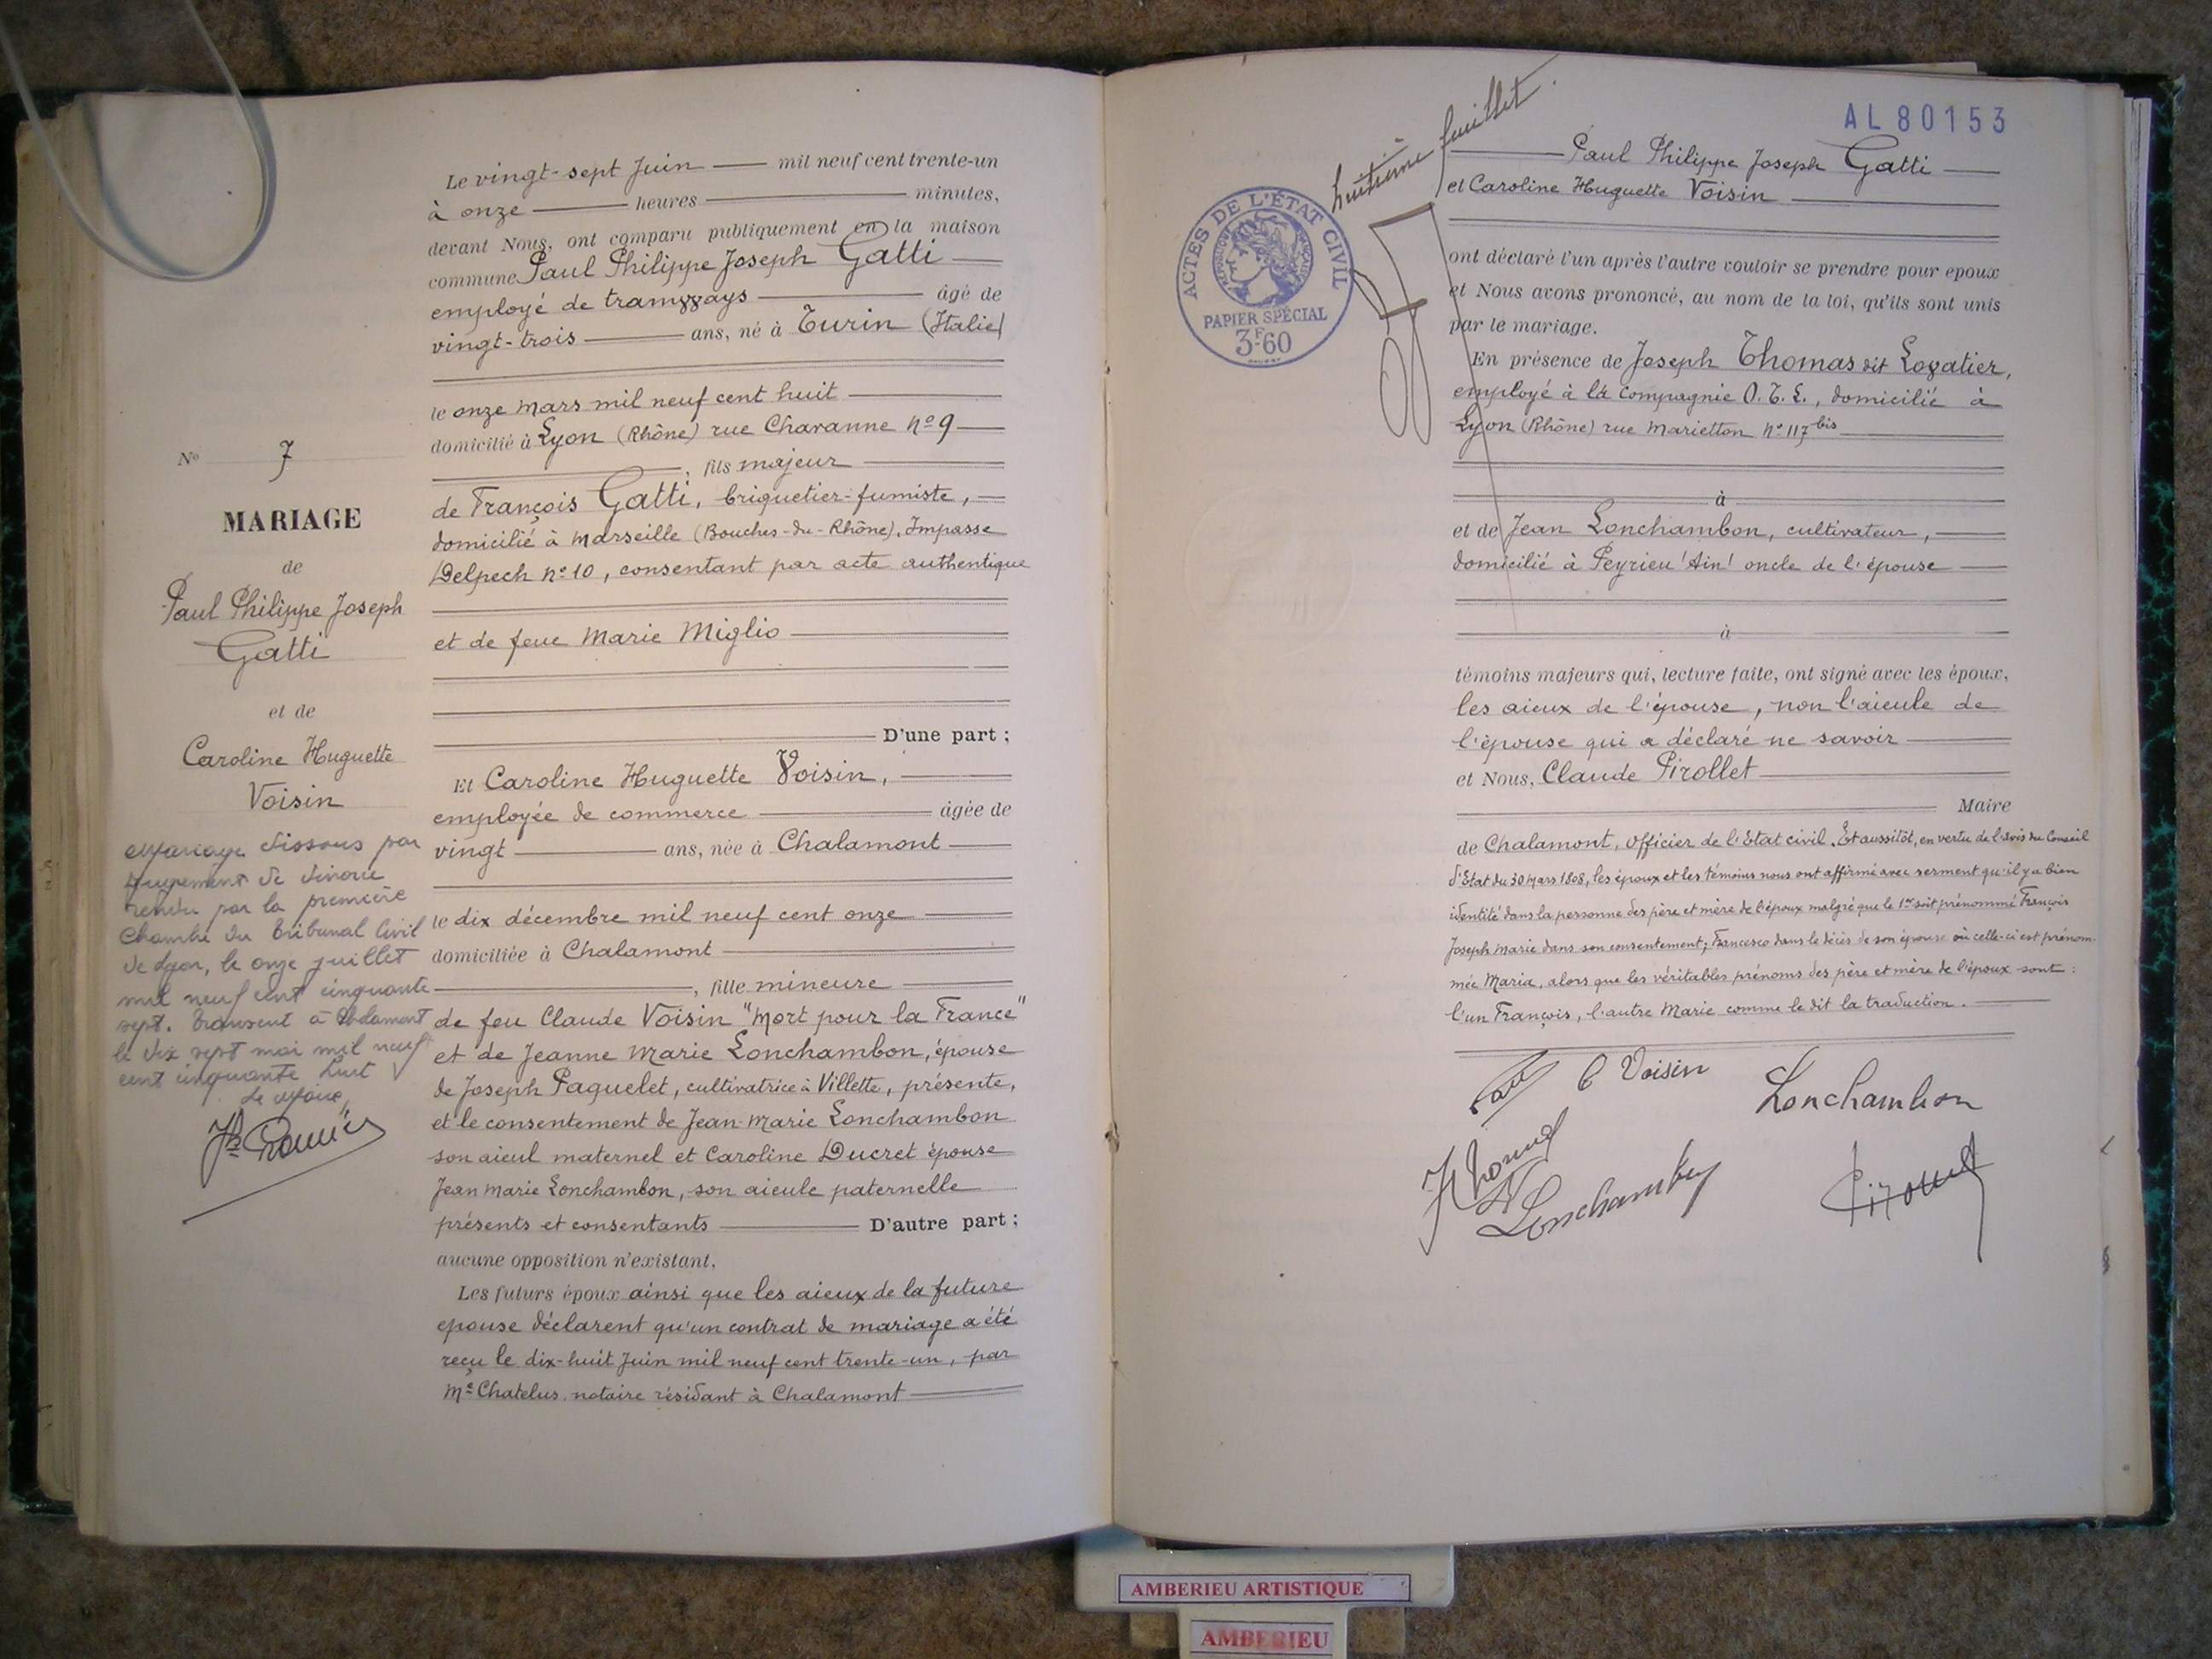 Le vingt-sept Juin mil neuf cent trente-un
à onze heures minutes,
devant Nous, ont comparu publiquement en la maison
commune Paul Philippe Joseph Gatti
employé de tramways âgé de
vingt-trois ans, né à Turin (Italie)
le onze mars mil neuf cent huit
domicilié à Lyon (Rhône) rue Charanne nº 9
, fils majeur
de François Gatti, briquetier-fumiste,
domicilié à Marseille (Bouches-du-Rhône), Impasse
Delpech nº 10, consentant par acte authentique
et de feue Marie Miglio
D'une part ;
Et Caroline Huguette Voisin,
employée de commerce âgée de
vingt ans, née à Chalamont
le dix décembre mil neuf cent onze
domiciliée à Chalamont
, fille mineure
de feu Claude Voisin "Mort pour la France"
et de Jeanne Marie Lonchambon, épouse
de Joseph Paquelet, cultivatrice à Villette, présente,
et le consentement de Jean-Marie Lonchambon
son aieul maternel et Caroline Ducret épouse
Jean Marie Lonchambon, son aieule paternelle
présents et consentants D'autre part ;
aucune opposition n'existant.
Les futurs époux ainsi que les aieux de la future
epouse déclarent qu'un contrat de mariage a été
reçu le dix-huit Juin mil neuf cent trente-un, par
Me Chatelus, notaire résidant à Chalamont
Nº 7
MARIAGE
de
Paul Philippe Joseph
Gatti
et de
Caroline Huguette
Voisin
Mariage dissous par
jugement de divorce
rendu par la première
Chambre du Tribunal Civil
de Lyon, le onze juillet
mil neuf cent cinquante
sept. Transcrit à Chalamont
le dix sept mai mil neuf
cent cinquante huit
Le Maire,
huitième feuillet
AL 80153
ACTES DE L'ÉTAT CIVIL
RÉPUBLIQUE FRANÇAISE
PAPIER SPÉCIAL
3F60
Paul Philippe Joseph Gatti
et Caroline Huguette Voisin
ont déclaré l'un après l'autre vouloir se prendre pour epoux
et Nous avons prononcé, au nom de la loi, qu'ils sont unis
par le mariage.
En présence de Joseph Thomas dit Lovatier,
employé à la Compagnie O. T. L., domicilié à
Lyon (Rhône) rue Marietton nº 117 bis
à
et de Jean Lonchambon, cultivateur,
domicilié à Peyrieu (Ain) oncle de l'épouse
à
témoins majeurs qui, lecture faite, ont signé avec les époux,
les aieux de l'épouse, non l'aieule de
l'épouse qui a déclaré ne savoir
et Nous, Claude Pirollet
Maire
de Chalamont, Officier de l'Etat civil. Et aussitôt, en vertu de l'avis du Conseil
d'Etat du 30 Mars 1808, les époux et les témoins nous ont affirmé avec serment qu'il y a bien
identité dans la personne des père et mère de l'époux malgré que le 1er soit prénommé François
Joseph Marie dans son consentement; Francesco dans le décès de son épouse où celle-ci est prénom-
mée Maria, alors que les véritables prénoms des père et mère de l'époux sont :
l'un François, l'autre Marie comme le dit la traduction.
C Voisin
Lonchambon
Lonchambon
AMBERIEU ARTISTIQUE
AMBERIEU